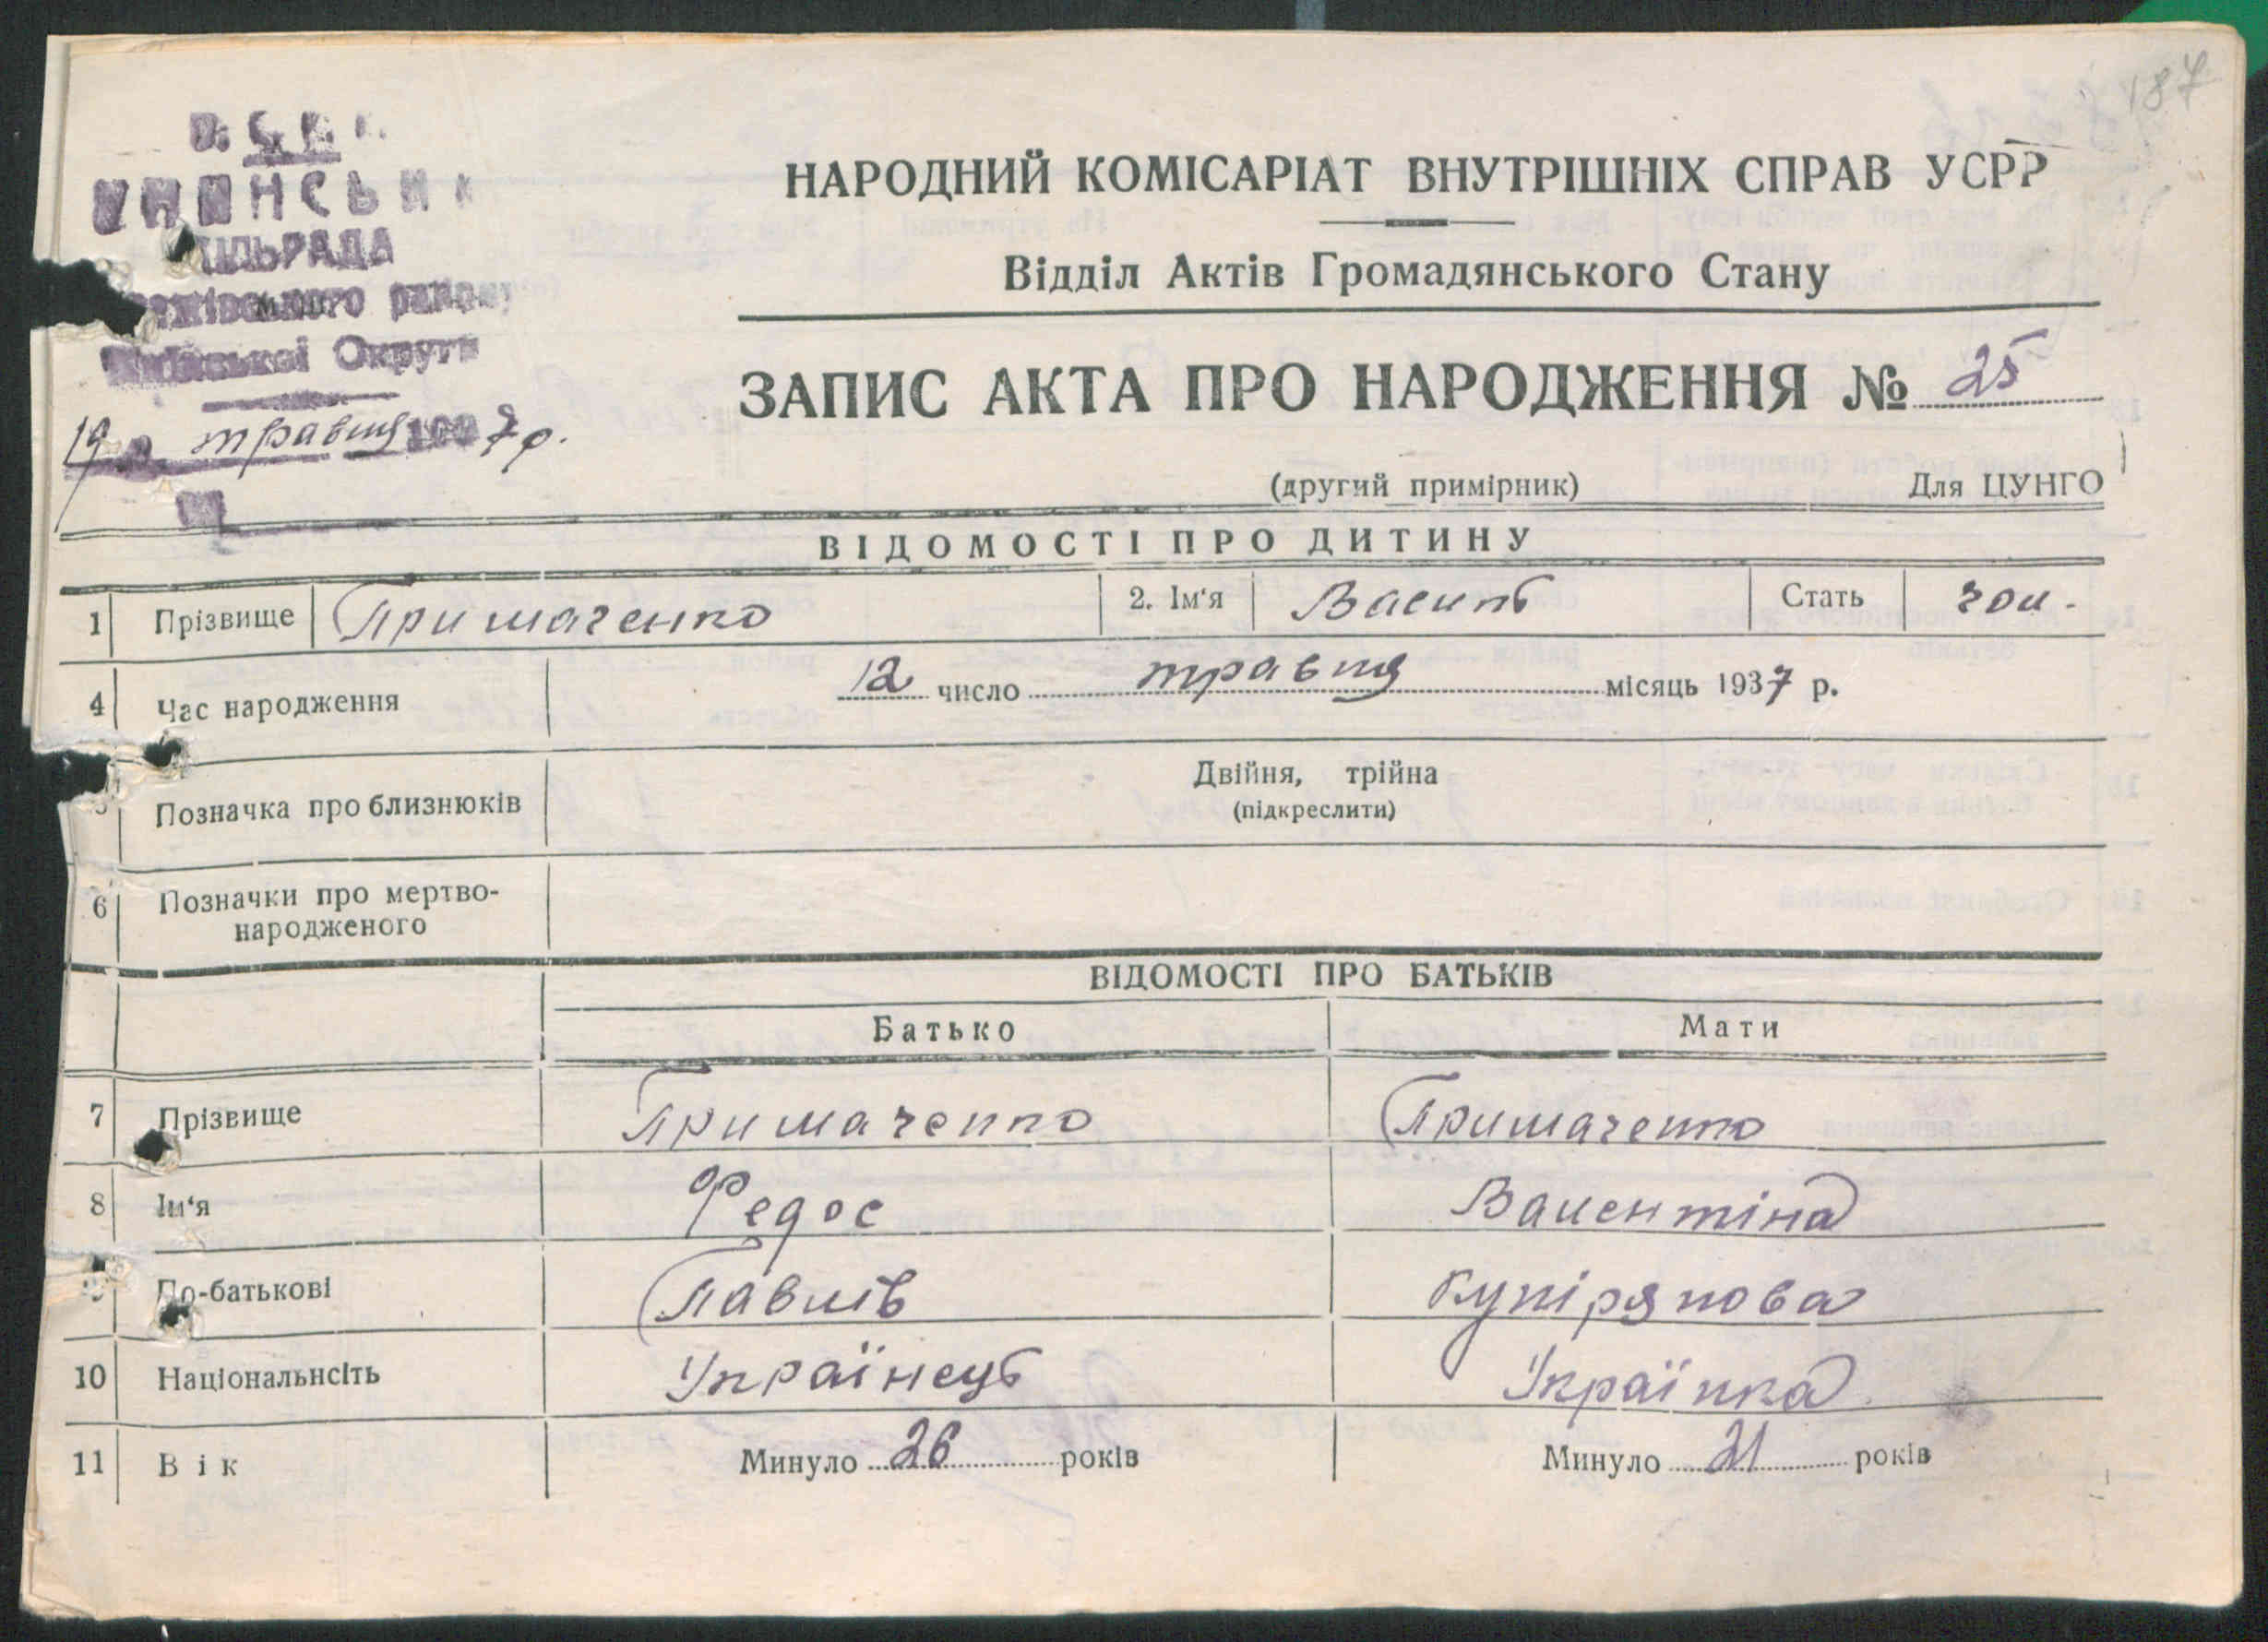 187
СІЛЬРАДА
району
Округи
19 травня 1937 р.
НАРОДНИЙ КОМІСАРІАТ ВНУТРІШНІХ СПРАВ УСРР
Відділ Актів Громадянського Стану
ЗАПИС АКТА ПРО НАРОДЖЕННЯ № 25
(другий примірник) Для ЦУНГО
ВІДОМОСТІ ПРО ДИТИНУ
1 Прізвище Примаченко 2. Ім'я Василь Стать чол.
4 Час народження 12 число травня місяць 1937 р.
5 Позначка про близнюків Двійня, трійна
(підкреслити)
6 Позначки про мертво-
народженого
ВІДОМОСТІ ПРО БАТЬКІВ
Батько Мати
7 Прізвище Примаченко Примаченко
8 Ім'я Федос Валентіна
9 По-батькові Павлів Купіріянова
10 Національнсіть Українець Українка
11 Вік Минуло 26 років Минуло 21 років